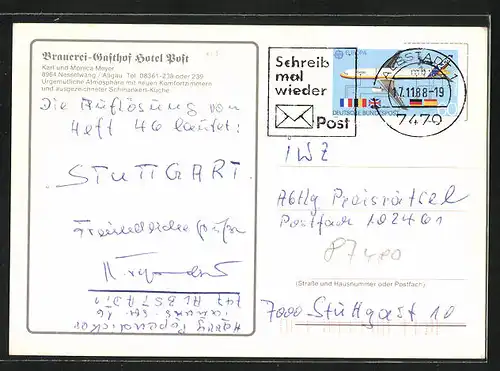 Brauerei-Gasthof Hotel Post
Karl und Monica Meyer
8964 Nesselwang / Allgäu Tel. 08361-238 oder 239
Urgemütliche Atmosphäre mit neuen Komfortzimmern
und ausgezeichneter Schmankerl-Küche
Die Auflösung von
Heft 46 lautet:
"STUTTGART"
Freundliche Grüße
Harry Papendicker
747 ALBSTADT 1
Schreib
mal
wieder
Post
EUROPA
DEUTSCHE BUNDESPOST
ALBSTADT 1
17.11.88-19
7470
IWZ
Abtlg Preisrätsel
Postfach 102461
87400
(Straße und Hausnummer oder Postfach)
7000 Stuttgart 10